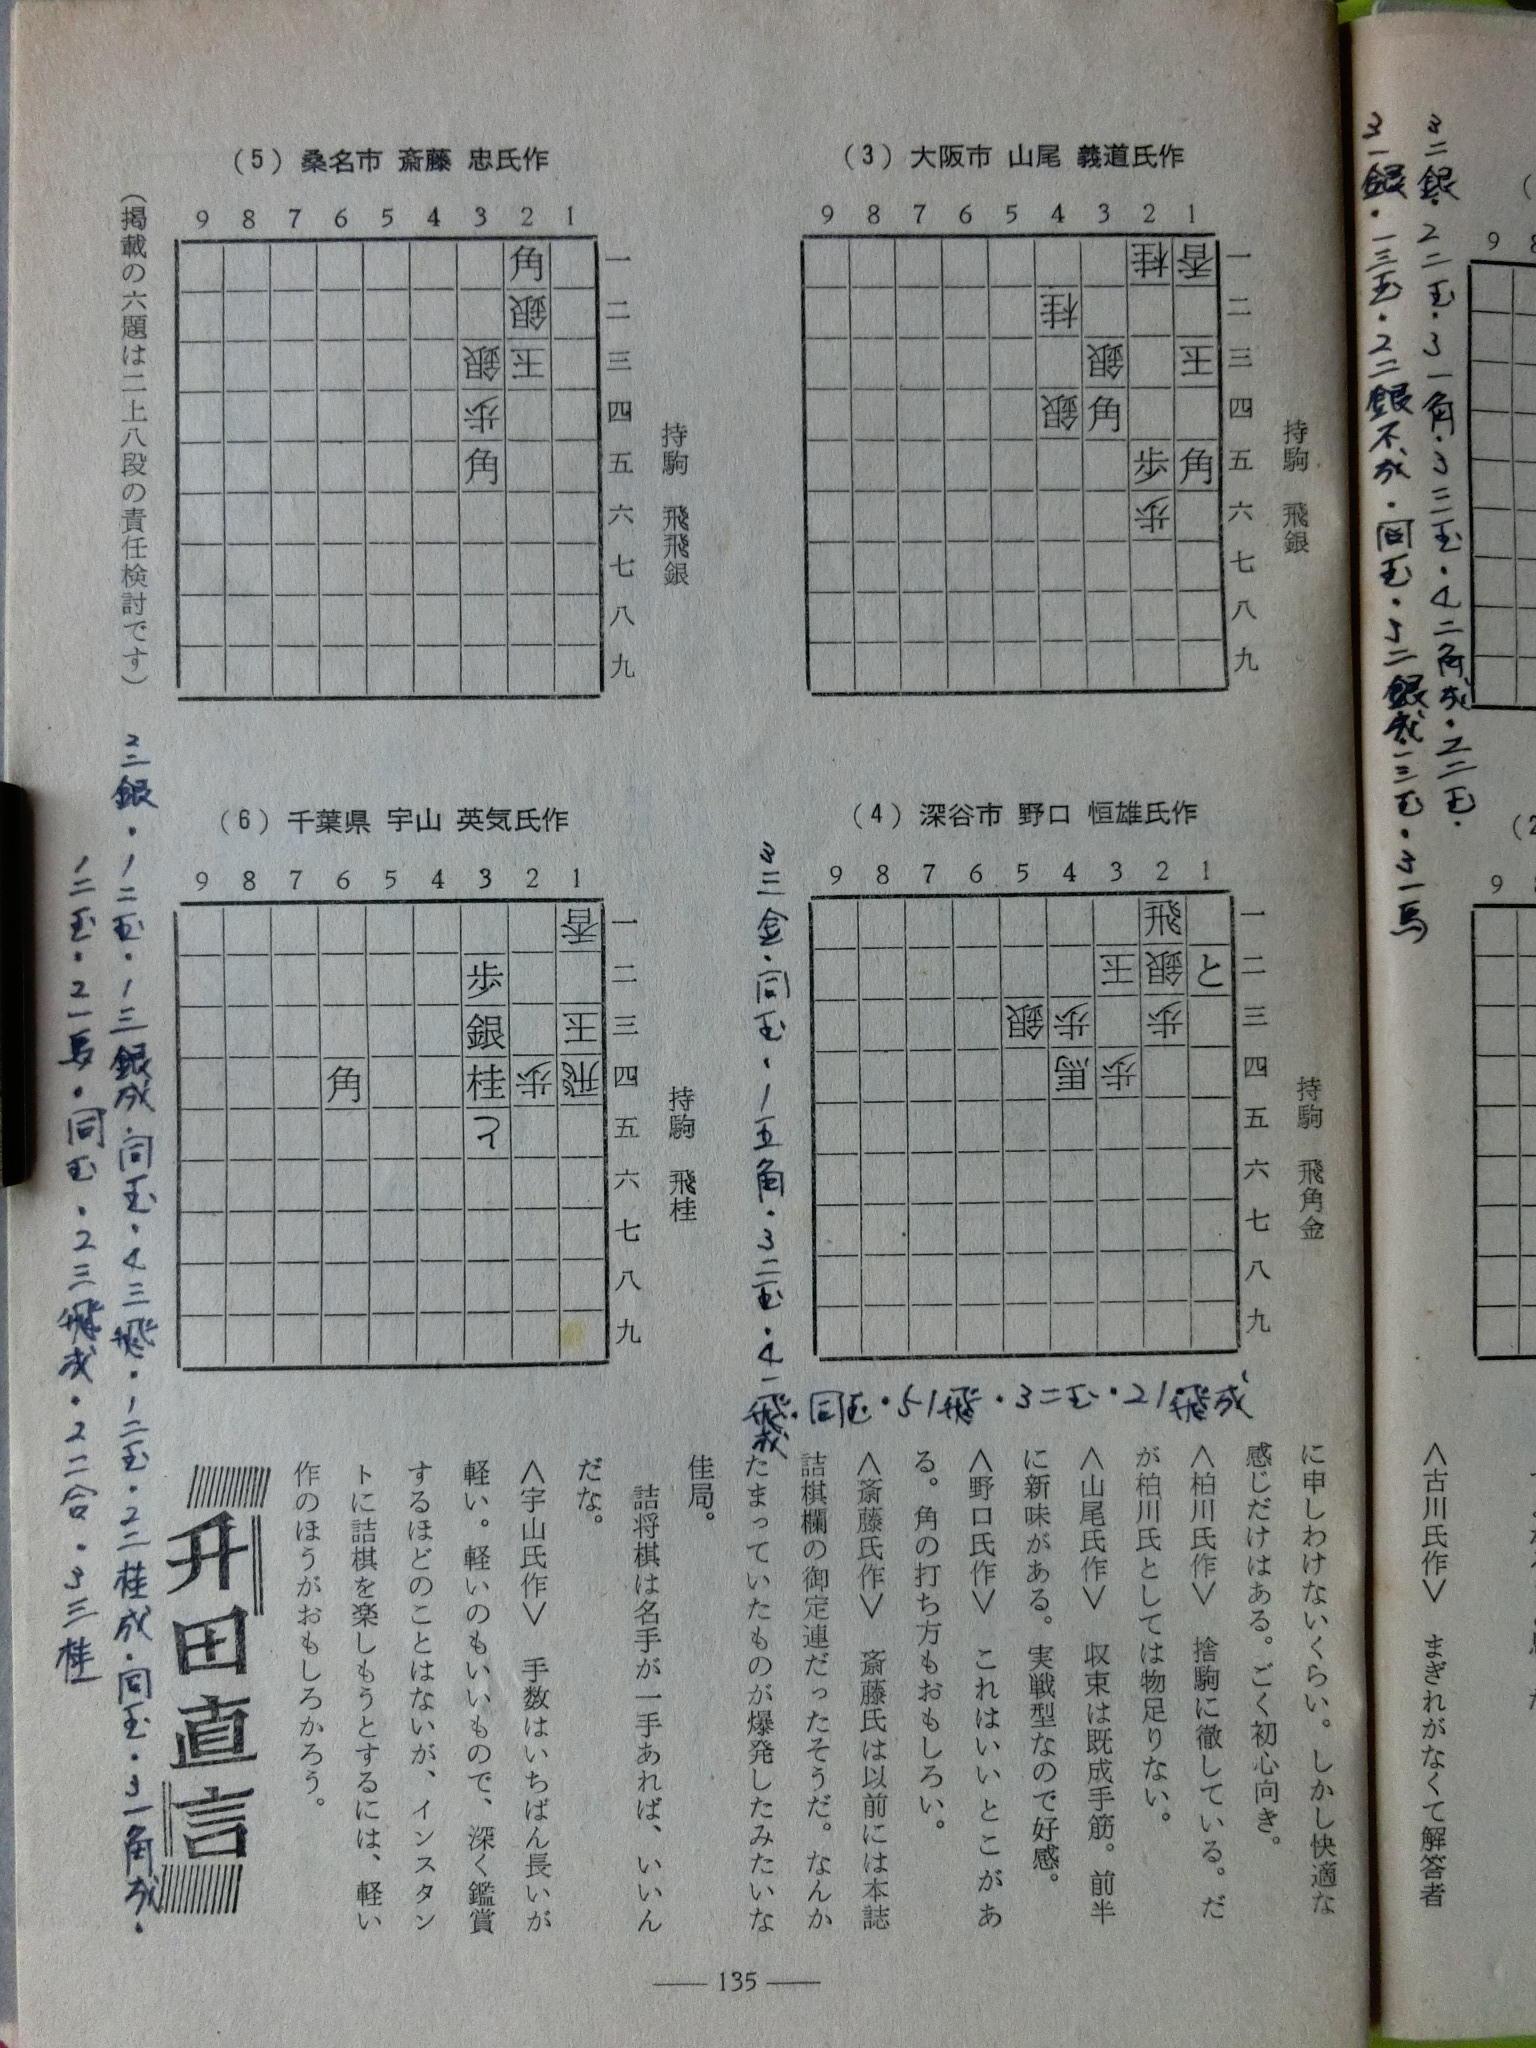 (3) 大阪市 山尾 義道氏作
9 8 7 6 5 4 3 2 1
桂 香 一
桂 二
銀 王 三
銀 角 四
歩 角 五
歩 六
七
八
九
持駒 飛銀
(4) 深谷市 野口 恒雄氏作
9 8 7 6 5 4 3 2 1
飛 一
王 銀 と 二
銀 歩 歩 三
馬 歩 四
五
六
七
八
九
持駒 飛角金
三三金・同玉・1五角・3二玉・4一飛成・同玉・51飛・3二玉・21飛成
(5) 桑名市 斎藤 忠氏作
9 8 7 6 5 4 3 2 1
角 一
銀 二
銀 王 三
歩 四
角 五
六
七
八
九
持駒 飛飛銀
(掲載の六題は二上八段の責任検討です)
(6) 千葉県 宇山 英気氏作
9 8 7 6 5 4 3 2 1
香 一
歩 二
銀 王 三
角 桂 歩 飛 四
と 五
六
七
八
九
持駒 飛桂
1二玉・1三銀成・同玉・4三飛・1二玉・2二桂成・同玉・3一角成・
1二玉・2一馬・同玉・2三飛成・2二合・3三桂
3二銀・2二玉・3一角・3三玉・4二角成・2二玉・
3一銀・1三玉・2二銀不成・同玉・3二銀成・1三玉・3一馬
9
9
<古川氏作> まぎれがなくて解答者
に申しわけないくらい。しかし快適な
感じだけはある。ごく初心向き。
<柏川氏作> 捨駒に徹している。だ
が柏川氏としては物足りない。
<山尾氏作> 収束は既成手筋。前半
に新味がある。実戦型なので好感。
<野口氏作> これはいいとこがあ
る。角の打ち方もおもしろい。
<斎藤氏作> 斎藤氏は以前には本誌
詰棋欄の御定連だったそうだ。なんか
たまっていたものが爆発したみたいな
佳局。
詰将棋は名手が一手あれば、いいん
だな。
<宇山氏作> 手数はいちばん長いが
軽い。軽いのもいいもので、深く鑑賞
するほどのことはないが、インスタン
トに詰棋を楽しもうとするには、軽い
作のほうがおもしろかろう。
升田直言
135